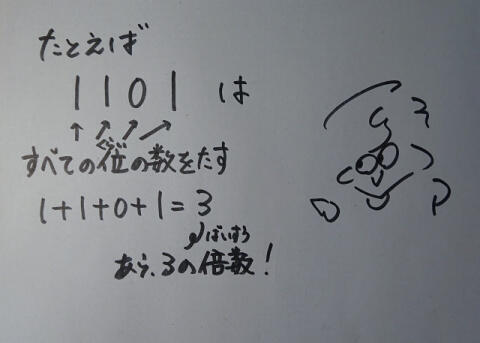 たとえば
1101は
すべての位の数をたす
くらい
1+1+0+1=3
ばいすう
あら、3の倍数!